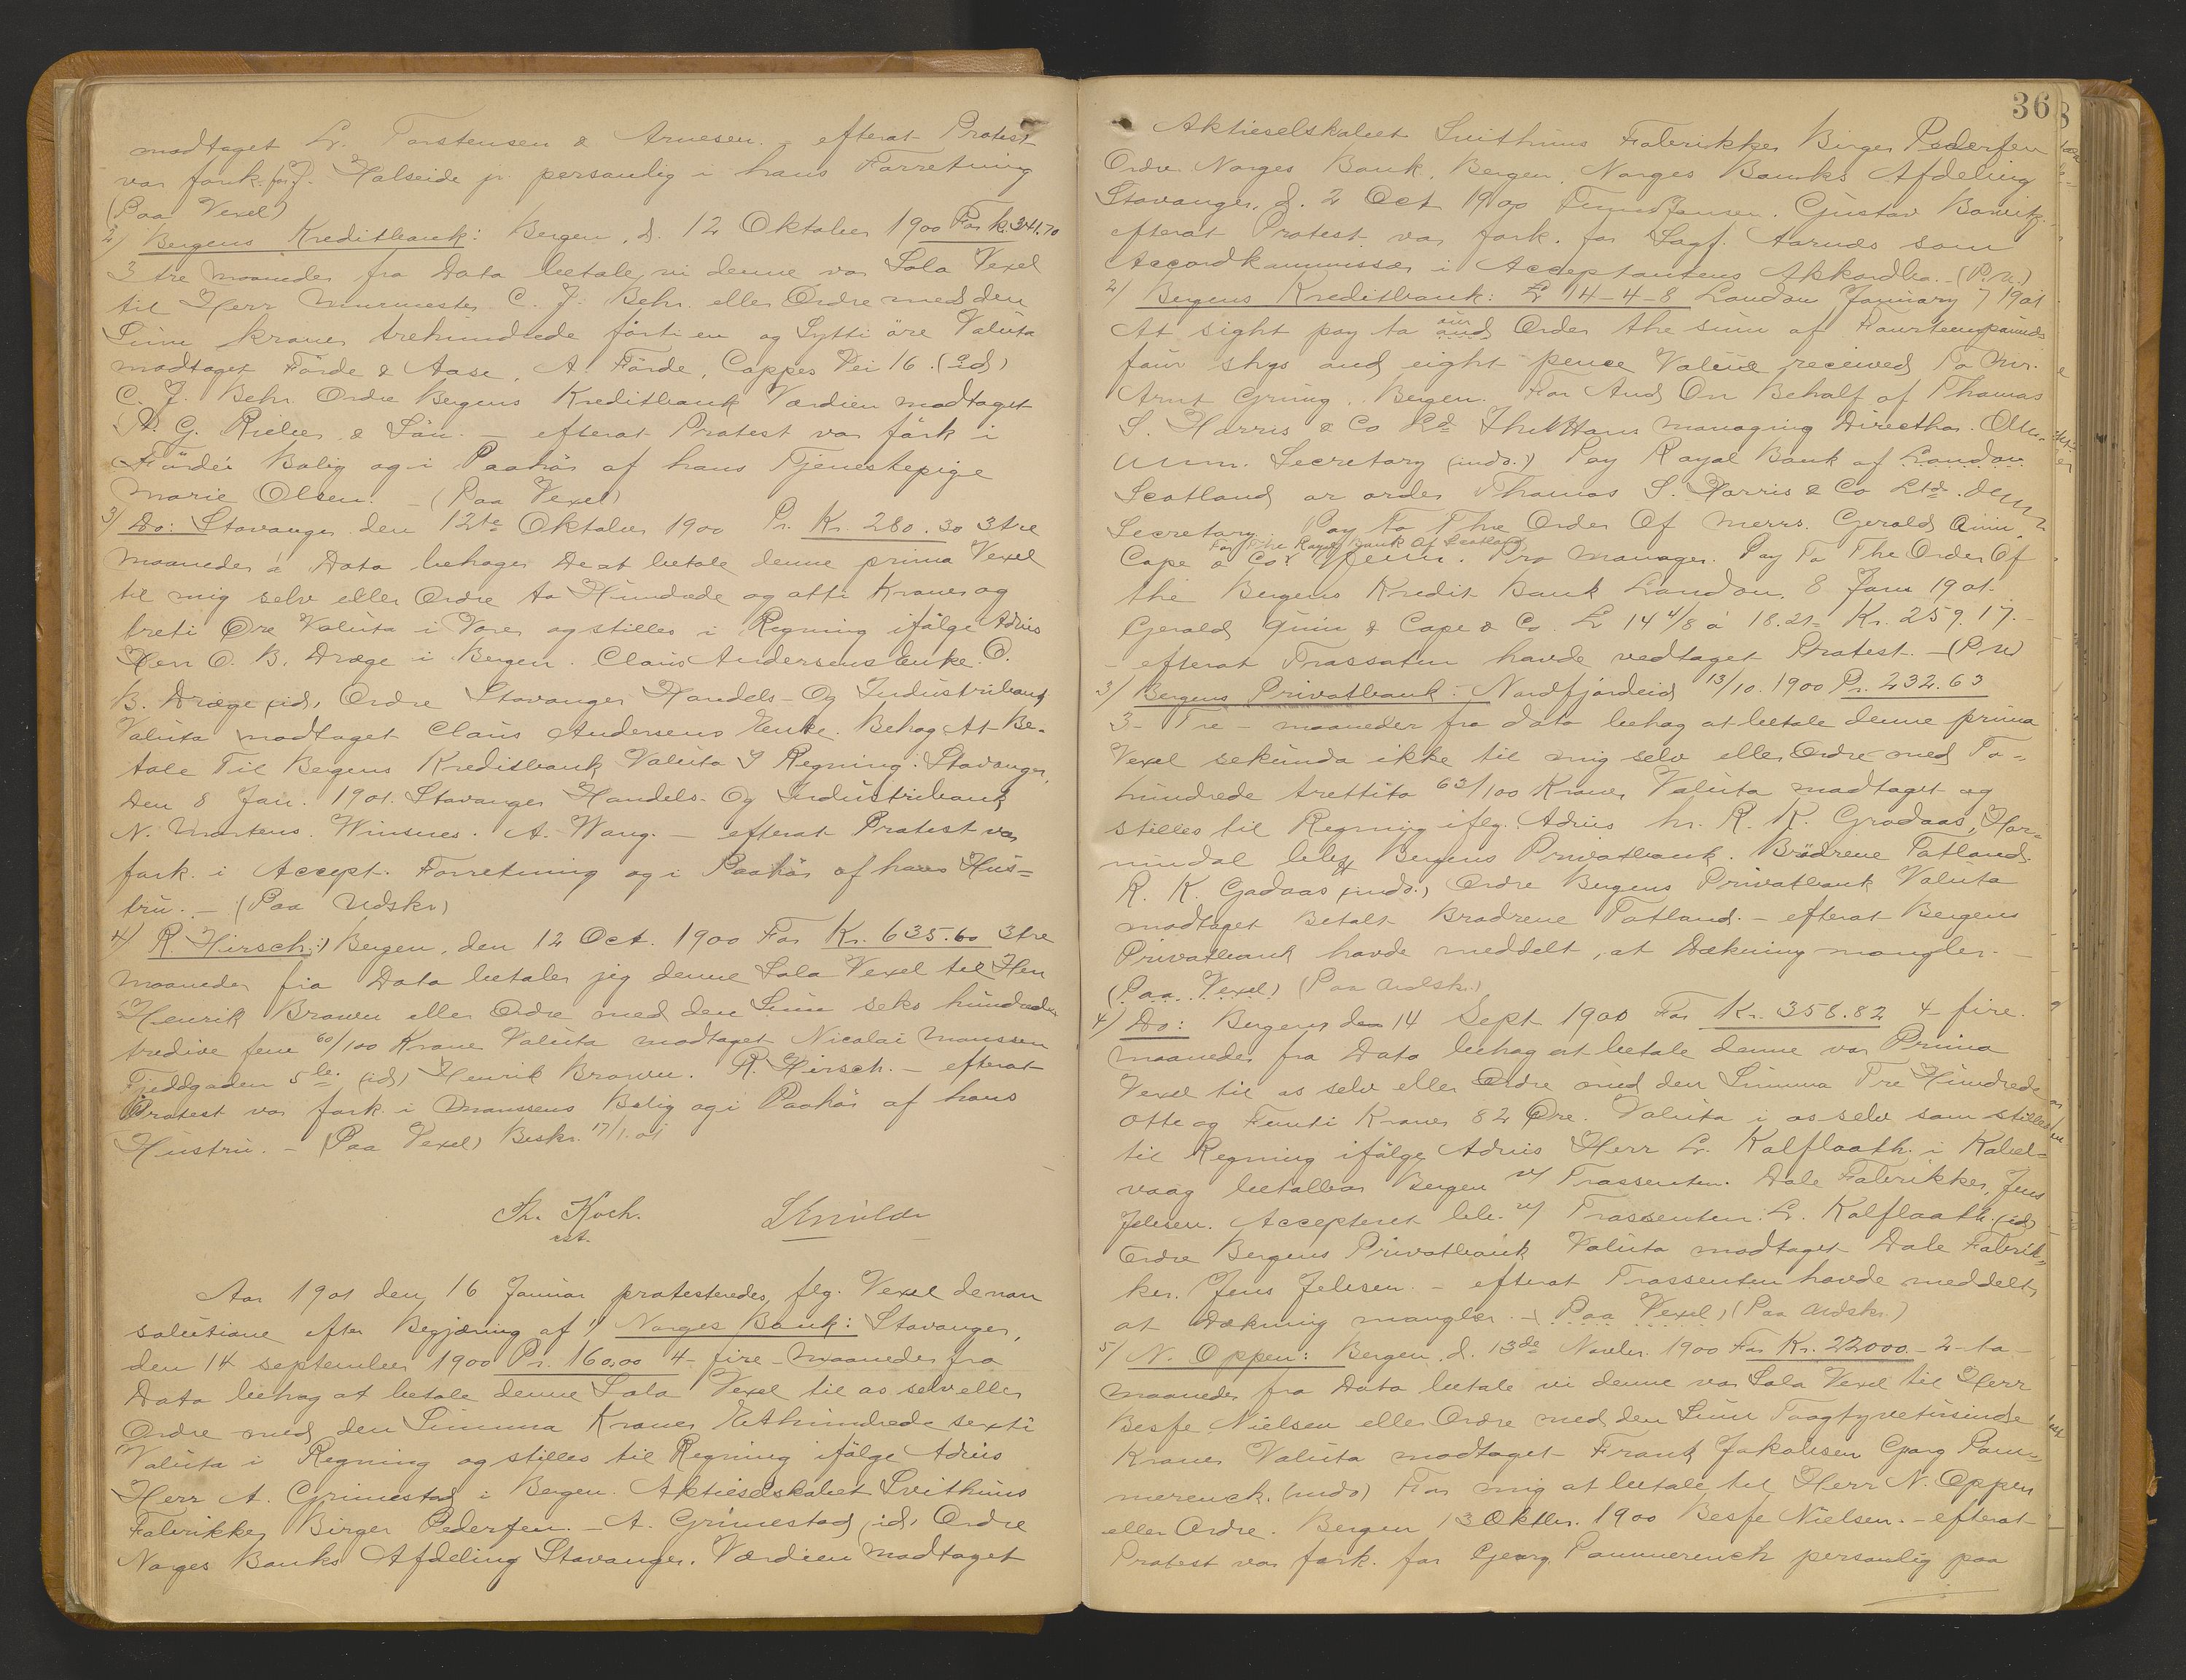 modtaget L. Torstensen & Arnesen. – efterat Protest
var fork. for J. Halseide jr. personlig i hans Forretning
(Paa Vexel)
2) Bergens Kreditbank: Bergen, d. 12 Oktober 1900 For k. 341.70
3 tre maaneder fra Dato betale vi denne vor Sola Vexel
til Herr Murmester C. J. Behr eller Ordre med den
Sum kroner trehundrede førti en og Sytti øre Valuta
modtaget Förde & Aase, A. Förde, Cappes Vei 16. (id)
C. J. Behr Ordre Bergens Kreditbank Værdien modtaget
A. G. Rieber & Sön. – efterat Protest var førk i
Förde's Bolig og i Paahör af hans Tjenestepige
Marie Olsen. – (Paa Vexel)
3) Do: Stavanger den 12te Oktober 1900 Pr. Kr. 280.30 3 tre
maaneder à Dato behager De at betale denne prima Vexel
til mig selv eller Ordre to Hundrede og otti Kroner og
treti Øre Valuta i Varer og stilles i Regning ifølge Advis
Herr O. B. Dræge i Bergen. Claus Andersens Enke. O.
B. Dræge (id) Ordre Stavanger Handels- Og Industribank
Valuta modtaget Claus Andersens Enke. Behag At Be-
tale Til Bergens Kreditbank Valuta I Regning. Stavanger,
Den 8 Jan. 1901. Stavanger Handels- Og Industribank
N. Mortens. Winsnes. A. Wang. – efterat Protest var
fork. i Accept. Forretning og i Paahör af hans Hus=
tru. – (Paa Udskr)
4) R. Hirsch:) Bergen, den 12 Oct. 1900 For Kr. 635.60 3 tre
maaneder fra Dato betaler jeg denne Sola Vexel til Herr
Henrik Brown eller Ordre med den Sum seks hundrede
tredive fem 60/100 Krone Valuta modtaget Nicolai Monssen
Fjeddgaden 5 (id) Henrik Brown. R. Hirsch. – efterat
Protest var fork i Monssens Bolig og i Paahör af hans
Hustru. – (Paa Vexel) Beskr. 17/1.01
Th. Koch.
Aar 1901 den 16 Januar protesteredes flg. Vexel de non
solutione efter Begjæring af 1) Norges Bank: Stavanger,
den 14 september 1900 Pr. 160,00 4– fire – maaneder fra
Dato behag at betale denne Sola Vexel til os selv eller
Ordre med den Summa Kroner Ethundrede sexti
Valuta i Regning og stilles til Regning ifølge Advis
Herr A. Grimestad i Bergen. Aktieselskabet Svithuns
Fabrikker Birger Pedersen. – A. Grimestad (id) Ordre
Norges Banks Afdeling Stavanger. Værdien modtaget
36
Aktieselskabet Svithuns Fabrikker Birger Pedersen
Ordre Norges Bank, Bergen, Norges Banks Afdeling
Stavanger, d. 2 Oct 1900 Gustav
efterat Protest var fork. for Sagf. Aarnes som
Accordkommissær i Acceptantens Akkordbo. – (P.U.)
2) Bergens Kreditbank: £ 14–4–8 London January 7 1901
At sight pay to our and Order the sum of Fourteen pounds
four shgs and eight pence Value received To Mr.
Arnt Grung. Bergen. For And On Behalf of Thomas
S. Harris & Co Ltd Managing Directhor.
Secretary (indo.) Pay Royal Bank of London
Scotland or order Thomas S. Harris & Co Ltd.
Secretary. Pay To The Order Of Merrs. Gerald Quin,
For The Royal Bank Of Scotland
Cape & Co. Pro Manager. Pay To The Order Of
the Bergens Kredit Bank London. 8 Janu 1901.
Gerald Quin & Cape & Co. £ 14 4/8 à 18.21= Kr. 259.17.–
– efterat Trassaten havde vedtaget Protest. – (P.U)
3) Bergens Privatbank: Nordfjordeid 13/10. 1900 Pr. 232.63
3– Tre – maaneder fra dato behag at betale denne prima
Vexel sekunda ikke til mig selv eller Ordre med To-
hundrede trettito 63/100 Kroner Valuta modtaget og
stilles til Regning iflg. Advis hr. R. K. Grodaas, Hor=
nindal Bergens Privatbank. Brödrene Tatland.
R. K. Gadaas (indo.) Ordre Bergens Privatbank Valuta
modtaget Betalt Brødrene Totland. – efterat Bergens
Privatbank havde meddelt, at Dækning mangler. –
(Paa Vexel) (Paa Udskr.)
4) Do: Bergens den 14 Sept 1900 For Kr. 358.82 4 fire.
maaneder fra Dato behag at betale denne vor Prima
Vexel til os selv eller Ordre med den Summa Tre Hundrede
otte og Femti Kroner 82 Øre. Valuta i os selv som stilles
til Regning ifølge Advis Herr L. Kalfloath i Kabel=
vaag betalbar Bergen v/ Trassenten. Dale Fabrikker, Jens
Jebsen. Accepteret bet. v/ Trassenten. L. Kalflaath. (id)
Ordre Bergens Privatbank Valuta modtaget Dale Fabrik=
ker. Jens Jebsen. – efterat Trassenten havde meddelt,
at Dækning mangler. – (Paa Vexel) (Paa Udskr.)
5) N. Oppen: Bergen, d. 13de Novbr. 1900 For Kr. 22000.– 2–to–
maaneder fra Dato betale vi denne vor Sola Vexel til Herr
Besfe Nielsen eller Ordre med den Sum Toogtyvetusinde
Kroner Valuta modtaget Frank Jakobsen Georg Pom=
merenck. (indo) For mig at betale til Herr N. Oppen
eller Ordre. Bergen 13 Oktbr. 1900 Besfe Nielsen. – efterat
Protest var fork. for Georg Pommerenck personlig paa